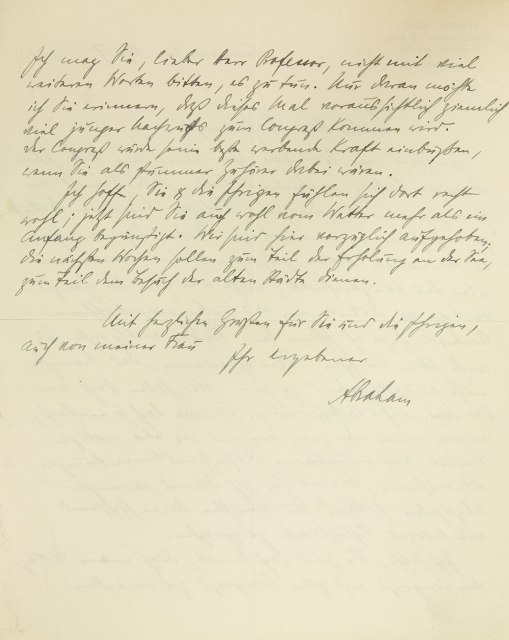 Ich mag Sie, lieber Herr Professor, nicht mit viel
weiteren Worten bitten, es zu tun. Nur daran möchte
ich Sie erinnern, daß dieses Mal voraussichtlich ziemlich
viel junger Nachwuchs zum Congreß kommen wird.
Der Congreß würde seine beste werbende Kraft einbüßen,
wenn Sie als stummer Zuhörer dabei wären.
Ich hoffe, Sie & die Ihrigen fühlen sich dort recht
wohl; jetzt sind Sie auch wohl vom Wetter mehr als im
Anfang begünstigt. Wir sind hier vorzüglich aufgehoben.
Die nächsten Wochen sollen zum Teil der Erholung an der See,
zum Teil dem Besuch der alten Städte dienen.
Mit herzlichen Grüßen für Sie und die Ihrigen,
auch von meiner Frau
Ihr ergebener
Abraham